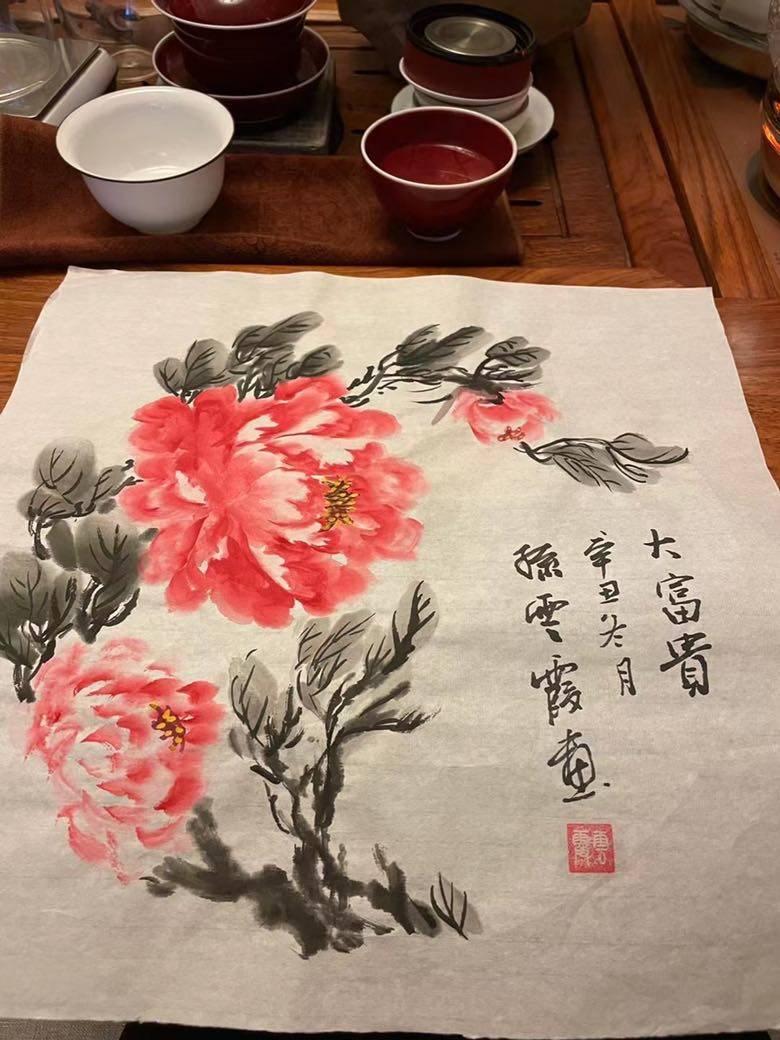 大富貴
辛丑冬月
孫雲霞畫